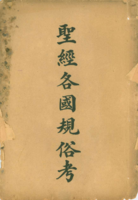 聖經各國規俗考